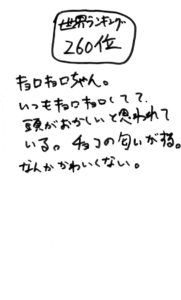 世界ランキング
260位
キョロキョロちゃん。
いつもキョロキョロしてて、
頭がおかしいと思われて
いる。チョコの匂いがする。
なんかかわいくない。